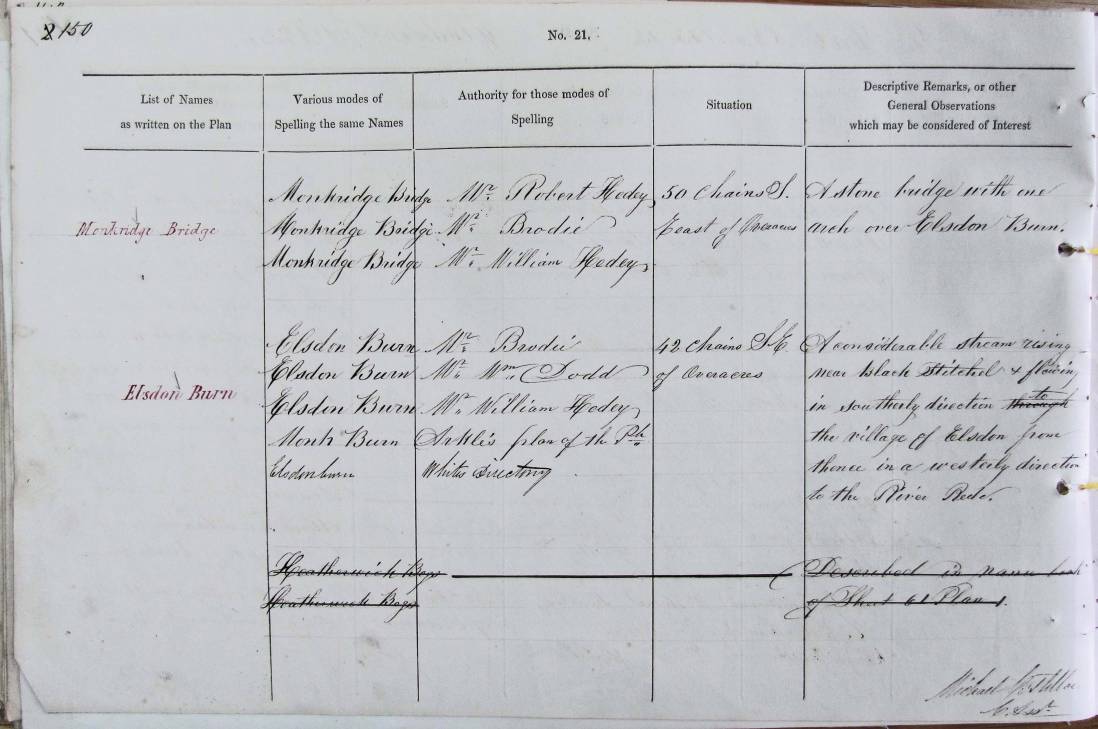 150
No. 21.
List of Names
as written on the Plan
Various modes of
Spelling the same Names
Authority for those modes of
Spelling
Situation
Descriptive Remarks, or other
General Observations
which may be considered of Interest
Monkridge Bridge
Monkridge Bridge Mr. Robert Hedey 50 Chains S. A stone bridge with one
Monkridge Bridge Mr. Brodie East of Overacres arch over Elsdon Burn.
Monkridge Bridge Mr. William Hedey
Elsdon Burn
Elsdon Burn Mr. Brodie 42 Chains S.E. A considerable stream rising
Elsdon Burn Mr. Wm. Dodd of Overacres near Black Stitchel & flowing
Elsdon Burn Mr. William Hedey in southerly direction through to
Monk Burn plan of the Ph. the village of Elsdon from
Elsdonburn Whites Directory thence in a westerly direction
to the River Rede.
Heatherwick Bogs Described in name book
Heatherwick Bogs of Sheet 61 Plan 1.
Michael